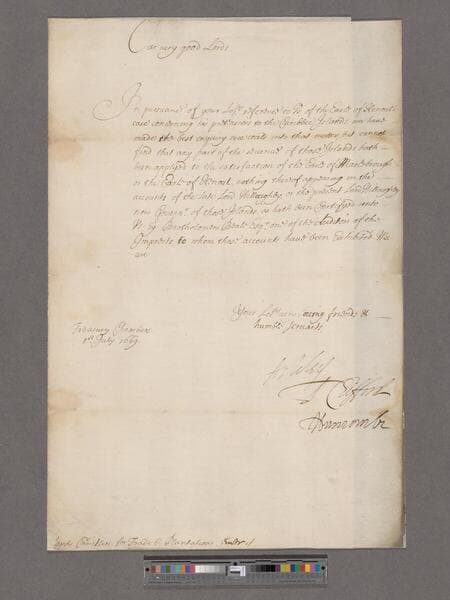 Our very good Lords
In pursuance of your Lops reference to us of the Earle of Kinoul
case concerning his pretension to the Carribee Islands, we have
made the best enquiry we could into that matter, but cannot
find that any part of the revenue of those Islands hath
been applyed to the satisfaction of the Earle of Marleborough
or the Earle of Kinoul, nothing thereof appearing on the
accounts of the late Lord Willoughby, or the present Lord Willoughby
now Govern of those Islands as hath been Certified unto
us by Bartholomew Beale Esqr one of the Auditors of the
Imprests to whom those accounts have been Exhibited We
are
Your Lopps loving friends &
humble servants
Treasury Chambers
July 1669
Ashley
T Clifford
JDuncombe
Lords for Trade & Plantations